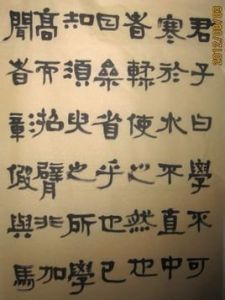 君子曰學不可
寒於水不直中
者輮使之然也
日參省乎也已
知須臾之所學
高而招臂非加
聞者章假與馬